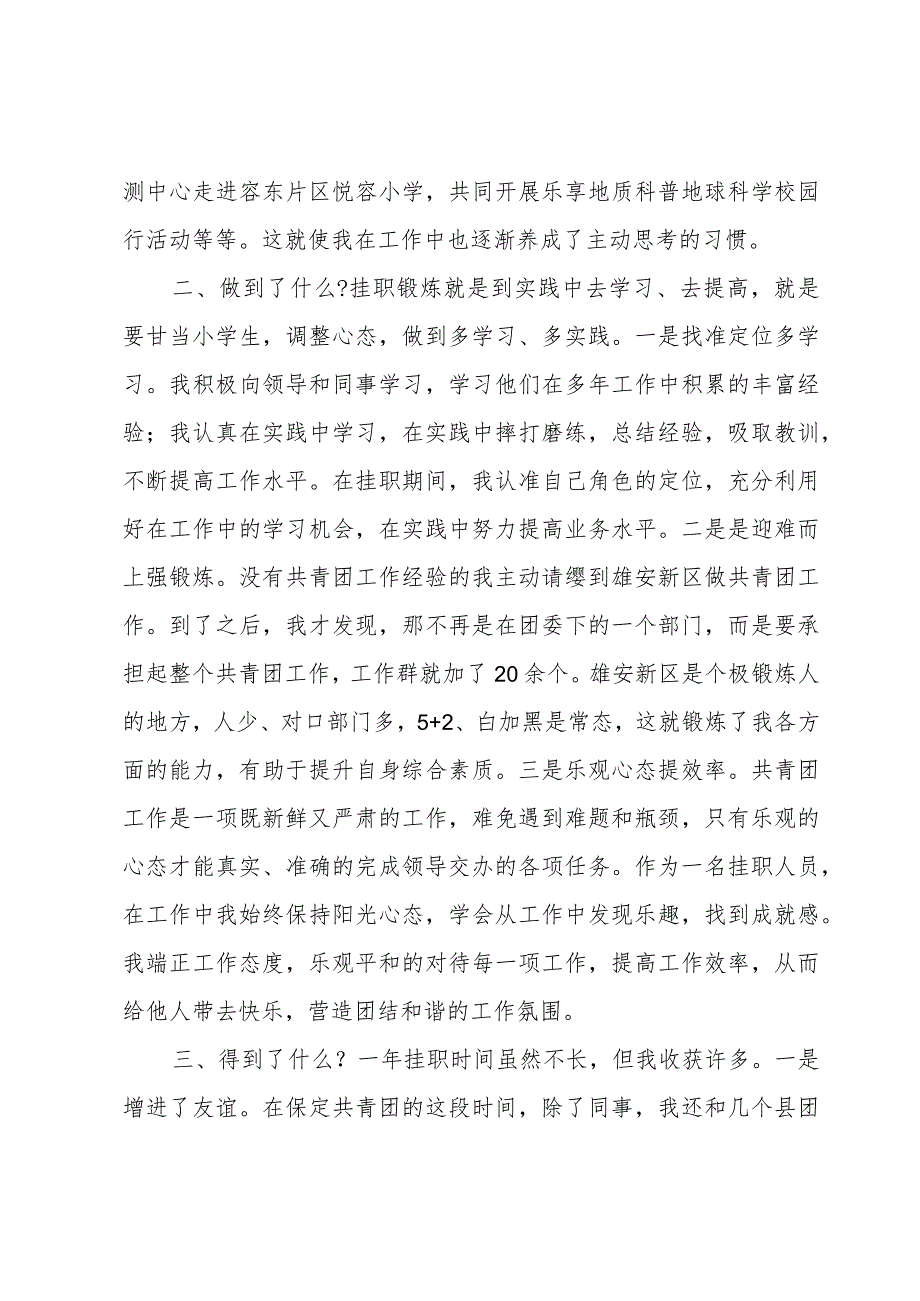 测中心走进容东片区悦容小学，共同开展乐享地质科普地球科学校园
行活动等等。这就使我在工作中也逐渐养成了主动思考的习惯。
二、做到了什么?挂职锻炼就是到实践中去学习、去提高，就是
要甘当小学生，调整心态，做到多学习、多实践。一是找准定位多学
习。我积极向领导和同事学习，学习他们在多年工作中积累的丰富经
验；我认真在实践中学习，在实践中摔打磨练，总结经验，吸取教训，
不断提高工作水平。在挂职期间，我认准自己角色的定位，充分利用
好在工作中的学习机会，在实践中努力提高业务水平。二是是迎难而
上强锻炼。没有共青团工作经验的我主动请缨到雄安新区做共青团工
作。到了之后，我才发现，那不再是在团委下的一个部门，而是要承
担起整个共青团工作，工作群就加了 20 余个。雄安新区是个极锻炼人
的地方，人少、对口部门多，5+2、白加黑是常态，这就锻炼了我各方
面的能力，有助于提升自身综合素质。三是乐观心态提效率。共青团
工作是一项既新鲜又严肃的工作，难免遇到难题和瓶颈，只有乐观的
心态才能真实、准确的完成领导交办的各项任务。作为一名挂职人员，
在工作中我始终保持阳光心态，学会从工作中发现乐趣，找到成就感。
我端正工作态度，乐观平和的对待每一项工作，提高工作效率，从而
给他人带去快乐，营造团结和谐的工作氛围。
三、得到了什么？一年挂职时间虽然不长，但我收获许多。一是
增进了友谊。在保定共青团的这段时间，除了同事，我还和几个县团